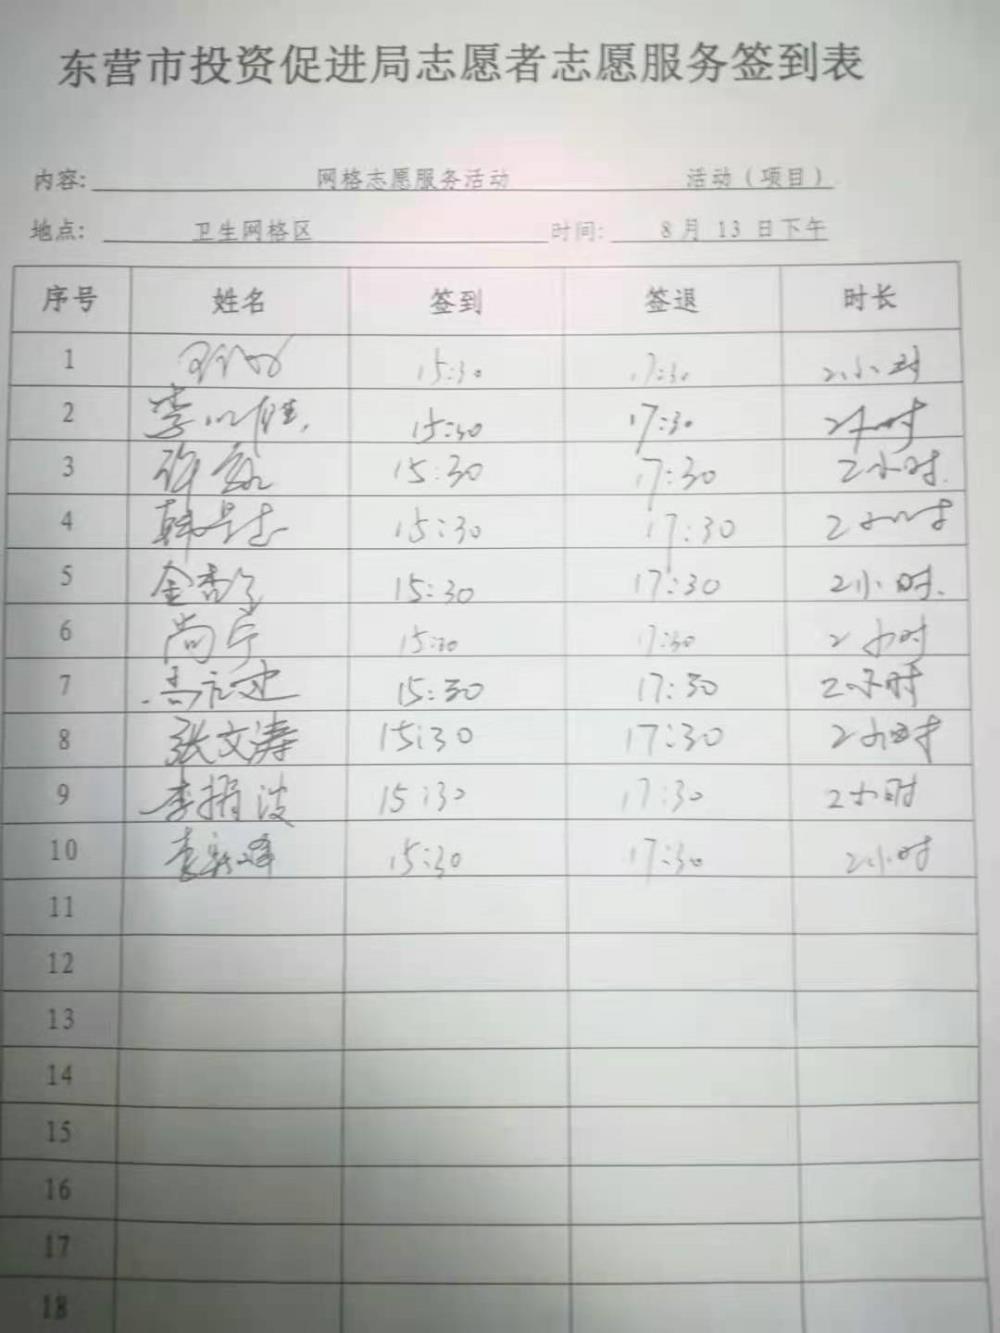 东营市投资促进局志愿者志愿服务签到表
内容: 网格志愿服务活动 活动（项目）
地点: 卫生网格区 时间: 8月 13 日下午
序号 姓名 签到 签退 时长
1 15:30 17:30 2小时
2 李 15:30 17:30 2小时
3 许 15:30 17:30 2小时.
4 韩 15:30 17:30 2小时
5 金 15:30 17:30 2小时.
6 尚宁 15:30 17:30 2小时
7 15:30 17:30 2小时
8 张文涛 15:30 17:30 2小时
9 李娟波 15:30 17:30 2小时
10 15:30 17:30 2小时
11
12
13
14
15
16
17
18